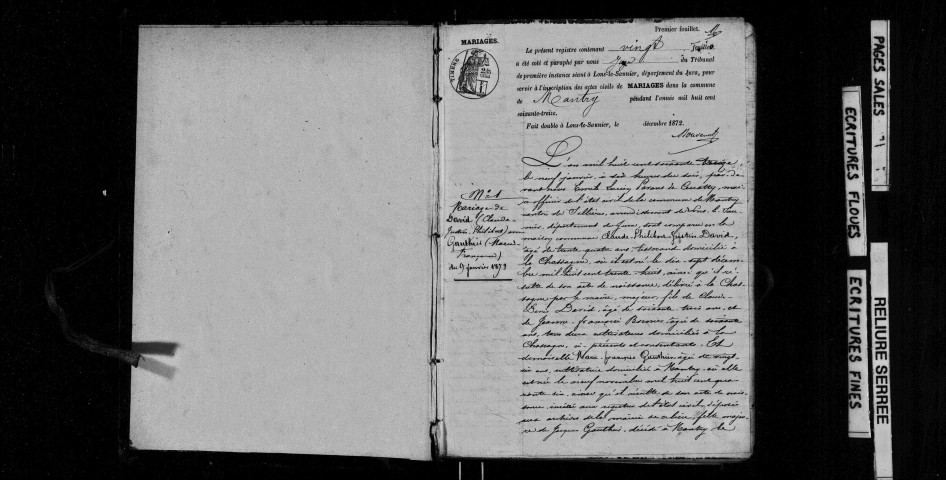 Premier feuillet.
MARIAGES.
TIMBRE
Le présent registre contenant vingt feuillets
a été coté et paraphé par nous juge du Tribunal
de première instance séant à Lons-le-Saunier, département du Jura, pour
servir à l'inscription des actes civils de MARIAGES dans la commune
de Mantry pendant l'année mil huit cent
soixante-treize.
Fait double à Lons-le-Saunier, le décembre 1872.
N° 1
Mariage de
David (Claude
Justin Philibert) avec
Gauthier (Marie
Françoise)
du 9 janvier 1873
L'an mil huit cent soixante treize,
le neuf janvier, à six heures du soir, par de-
vant nous Comte
officier de l'état civil de la commune de Mantry
canton de Sellières, arrondissement de Lons-le-Sau-
nier, département du Jura, sont comparus en la
maison commune Claude Philibert Justin David,
âgé de trente quatre ans, domicilié à
la Chassagne, où il est né le dix sept décem-
bre mil huit cent trente huit, ainsi qu'il ré-
sulte de son acte de naissance, délivré à la Chas-
sagne par le maire, majeur, fils de Claude
David, âgé de soixante trois ans, et
de Jeanne françoise âgée de soixante
ans, tous deux cultivateurs domiciliés à la
Chassagne, ci-présents et consentants. Et
demoiselle Marie Françoise Gauthier âgée de vingt
six ans, cultivatrice domiciliée à Mantry, où elle
est née le neuf novembre mil huit cent qua-
rante six, ainsi qu'il résulte de son acte de nais-
sance, inscrit aux registres de l'état civil, déposés
aux archives de la mairie de ce lieu, fille majeu-
re de Jacques Gauthier, décédé à Mantry le
PAGES SALES
ECRITURES FLOUES
ECRITURES FINES
RELIURE SERREE